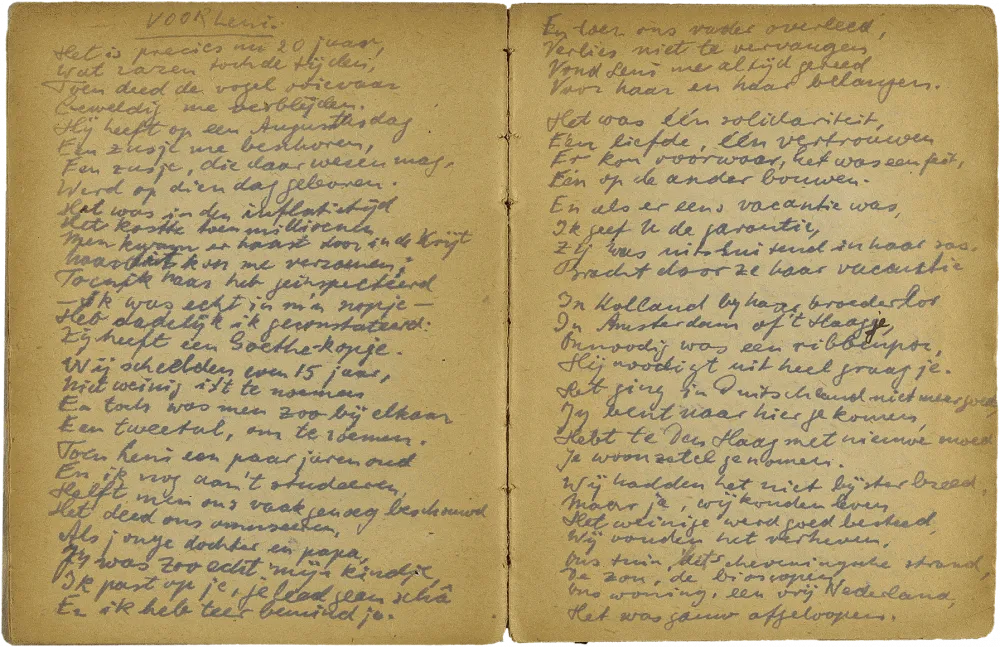 VOOR Leni.
Het is precies nu 20 jaar,
Wat razen toch de tijden,
Toen deed de vogel ooievaar
Geweldig me verblijden.
Hij heeft op een Augustusdag
Een zusje me beschoren,
Een zusje, die daar wezen mag,
Werd op dien dag geboren.
Het was in den inflatietijd
Het kostte toen millioenen
Men kwam er haast door in de krijt
kon me verzoenen.
Toen ik haar heb geïnspecteerd
– Ik was echt in m'n nopje –
Heb dadelijk ik geconstateerd:
Zij heeft een Goethe-kopje.
Wij scheelden om 15 jaar,
Niet weinig is't te noemen
En toch was men zoo bij elkaar
Een tweetal, om te roemen.
Toen Leni een paar jaren oud
En ik nog aan't studeeren,
Heeft men ons vaak genoeg beschouwd
Het deed ons amuseeren,
Als jonge dochter en papa,
Jij was zoo echt mijn kindje,
Ik past op je, je leed geen schâ
En ik heb teer bemind je.
En toen ons vader overleed,
Verlies niet te vervangen
Vond Leni me altijd gereed
Voor haar en haar belangen.
Het was één solidariteit,
Eén liefde, één vertrouwen
Er kon voorwaar, het was een feit,
Eén op de ander bouwen.
En als er eens vacantie was,
Ik geef U de garantie,
Zij was uitsluitend in haar sas.
Bracht door ze haar vacantie
In Holland by haar broederlor
In Amsterdam of 't Haagje,
Onnoodig was een ribbenpor,
Hij noodigt uit heel graag je.
Het ging in Duitschland niet meer goed,
Jy bent naar hier gekomen,
Hebt te Den Haag met nieuwe moed
Je woonzetel genomen.
Wij hadden het niet bijster breed,
Maar ja, wij konden leven,
Het weinige werd goed besteed,
Wij vonden het verheven.
Ons tuin, het scheveningsche strand,
De zon, de bioscopen,
Ons woning, een vrij Nederland,
Het was gauw afgeloopen.